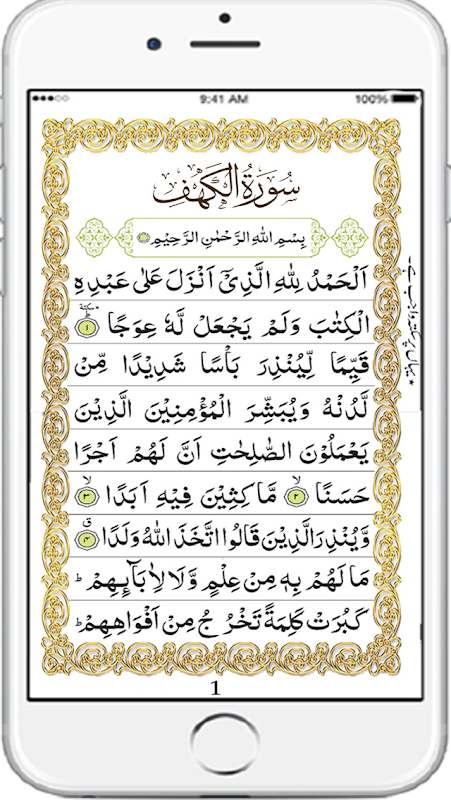 9:41 AM 100%
سُوْرَةُ الْكَهْفِ
بِسْمِ اللّٰهِ الرَّحْمٰنِ الرَّحِيْمِ
اَلْحَمْدُ لِلّٰهِ الَّذِيْٓ اَنْزَلَ عَلٰى عَبْدِهِ
الْكِتٰبَ وَلَمْ يَجْعَلْ لَّهٗ عِوَجًا ۱
قَيِّمًا لِّيُنْذِرَ بَاْسًا شَدِيْدًا مِّنْ
لَّدُنْهُ وَيُبَشِّرَ الْمُؤْمِنِيْنَ الَّذِيْنَ
يَعْمَلُوْنَ الصّٰلِحٰتِ اَنَّ لَهُمْ اَجْرًا
حَسَنًا ۲ مَّاكِثِيْنَ فِيْهِ اَبَدًا ۳
وَّيُنْذِرَ الَّذِيْنَ قَالُوا اتَّخَذَ اللّٰهُ وَلَدًا ۴
مَا لَهُمْ بِهٖ مِنْ عِلْمٍ وَّلَا لِاٰبَآئِهِمْ ؕ
كَبُرَتْ كَلِمَةً تَخْرُجُ مِنْ اَفْوَاهِهِمْ ؕ
1